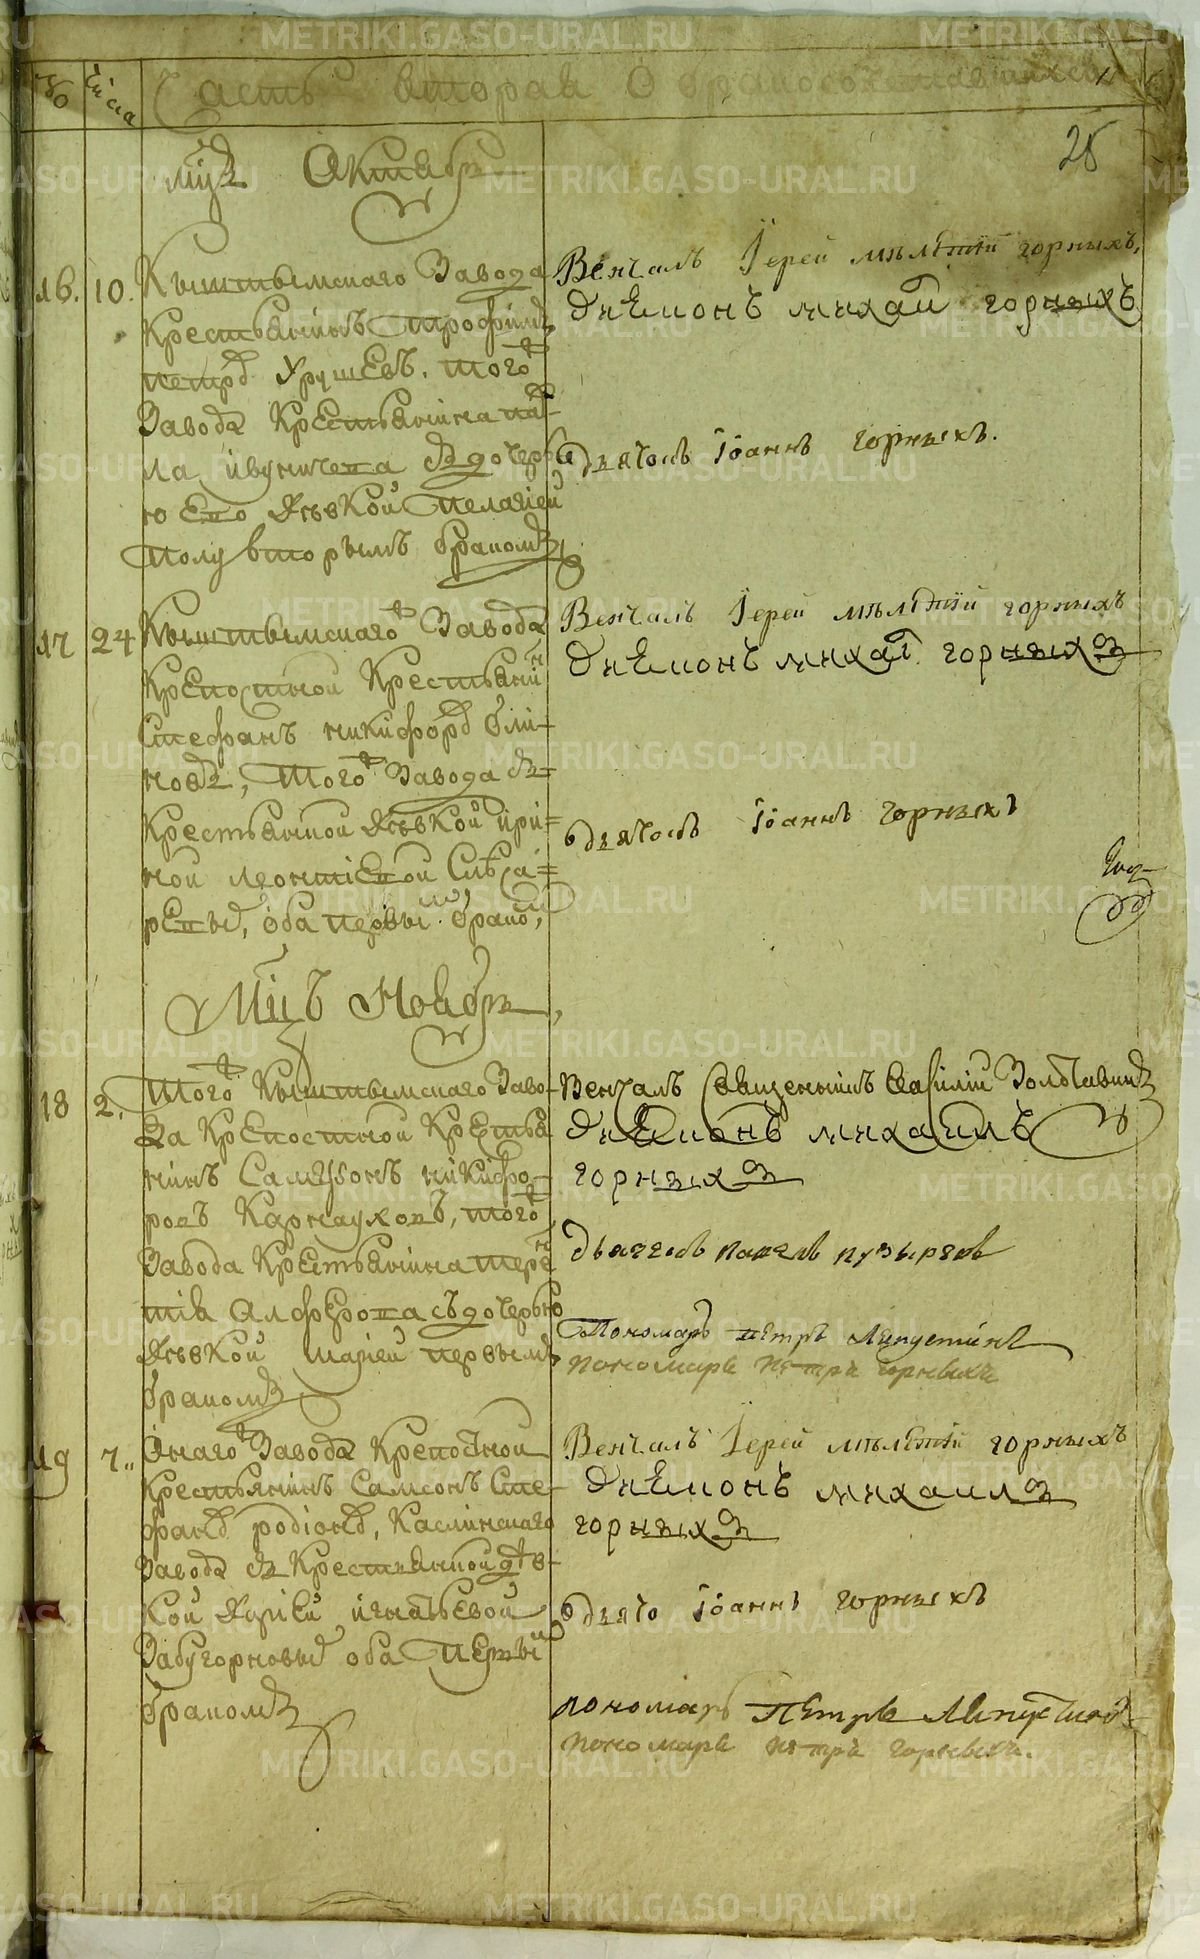 METRIKI.GASO-URAL.RU
№ Числа Часть вторая О бракосочетавшихся
25
мц҃ъ Октябрь
16. 10. Кыштымскаго Завода
Крестьянинъ Трофимъ
петровъ Хрущевъ, того
Завода Крестьянина па-
ла з дочерь
ю ево дѣвкой Пелагіей
полувторымъ бракомъ
Венчалъ Іерей мѣлетій горныхъ,
дияконъ михаи горныхъ
дьячокъ Іоаннъ горныхъ.
17 24 Кыштымскаго Завода
Крепостной Крестьянин
Стефанъ никифоровъ бли-
новъ, Того Завода з=
Крестьянкой дѣвкой ири=
ной леонтіевой Слѣса=
ревыхъ, оба первым бракомъ,
Венчалъ Іерей мѣлетій горныхъ
дияконъ михаил горныхъ
дьячокъ Іоаннъ горныхъ
Мцъ Ноябрь,
18 2. Того Кыштымскаго Заво-
да Крепостной Крестья
нинъ Самсонъ никифо-
ровъ Карнауховъ, того
Завода Крестьянина терен
тія Алферова съ дочерью
дѣвкой маріей первымъ
бракомъ
Венчалъ Священникъ Василий Золотавинъ
дияконъ михаилъ
горныхъ
дьячекъ павелъ пузыревъ
Пономарь петръ Лепустинъ
пономарь петръ горныхъ
19 7. Онаго Завода Крепостной
Крестьянинъ Самсонъ Сте-
фановъ родіоновъ, Каслинскаго
Завода з Крестьянкой дѣв-
кой Маріей игнатьевой
Забугорновыхъ оба первым
бракомъ
Венчалъ Іерей мѣлетій горныхъ
дияконъ михаилъ
горныхъ
дьячо Іоаннъ горныхъ
пономарь Петръ Лепустинъ
пономарь петръ горныхъ.